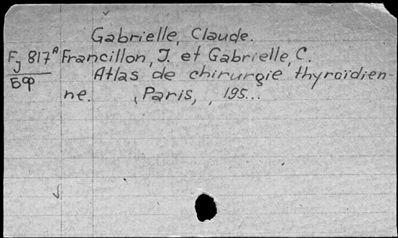 Gabrielle, Claude.
Fj 817ᴬ Francillon, J. et Gabrielle, C.
БФ Atlas de chirurgie thyroïdien-
ne. , Paris, , 195...